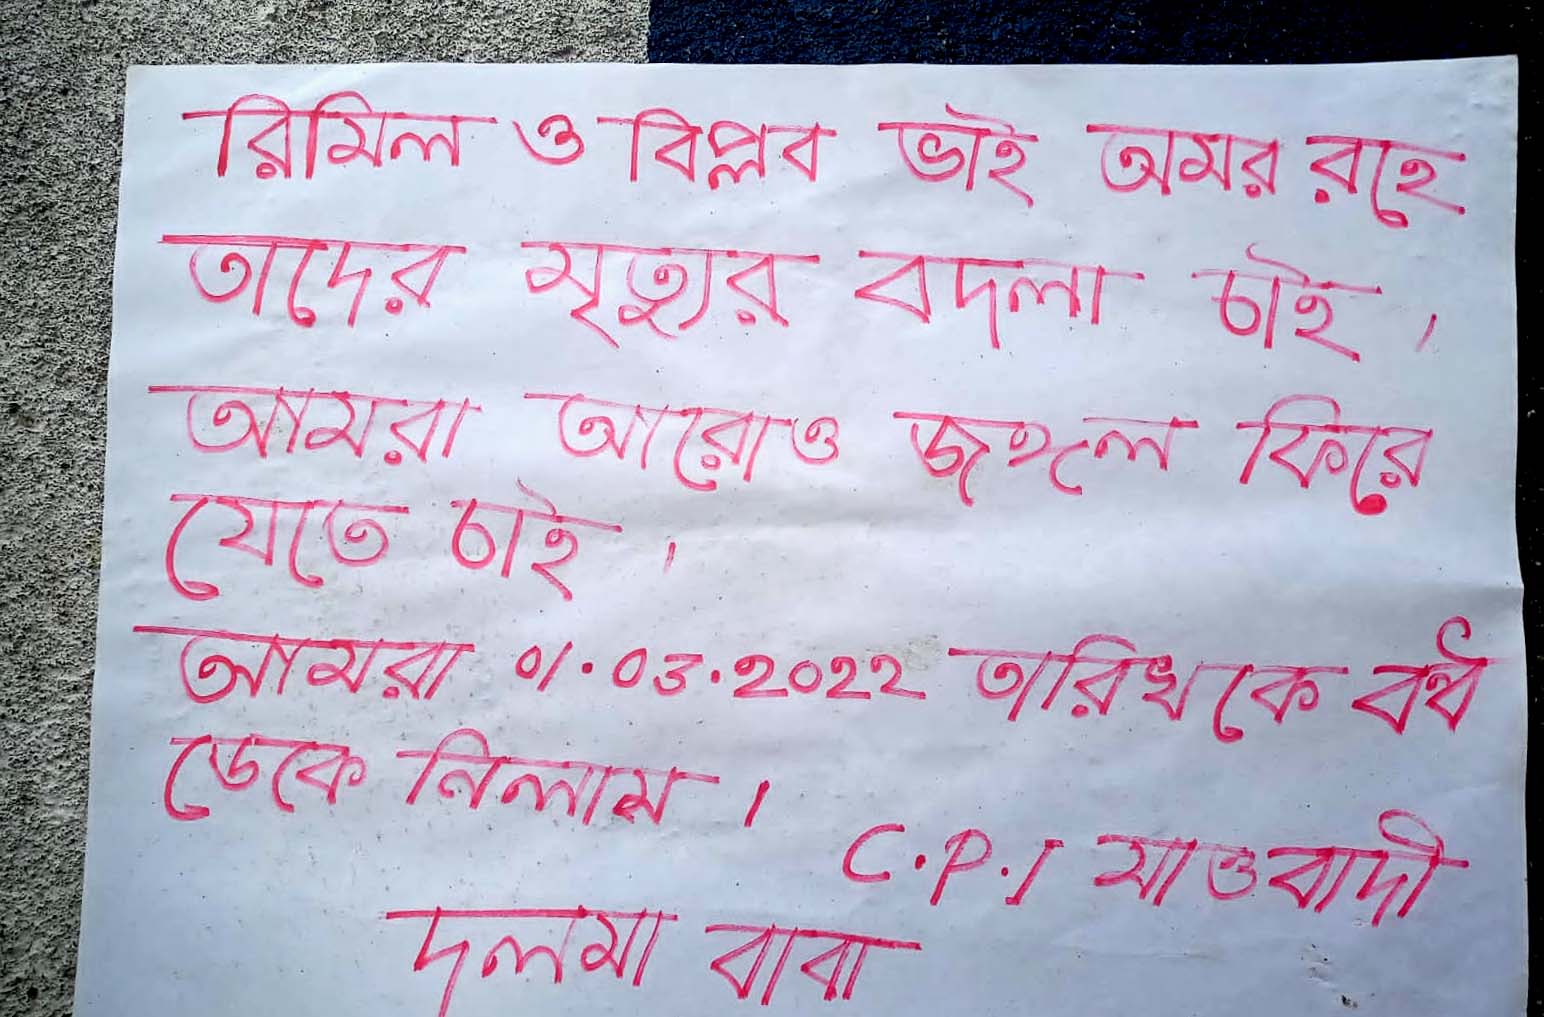 রিমিল ও বিপ্লব ভাই অমর রহে
তাদের মৃত্যুর বদলা চাই ।
আমরা আরোও জঙ্গলে ফিরে
যেতে চাই ।
আমরা 01.03.2022 তারিখকে বর্ধ
ডেকে নিলাম ।
C.P.I মাওবাদী
দলমা বাবা